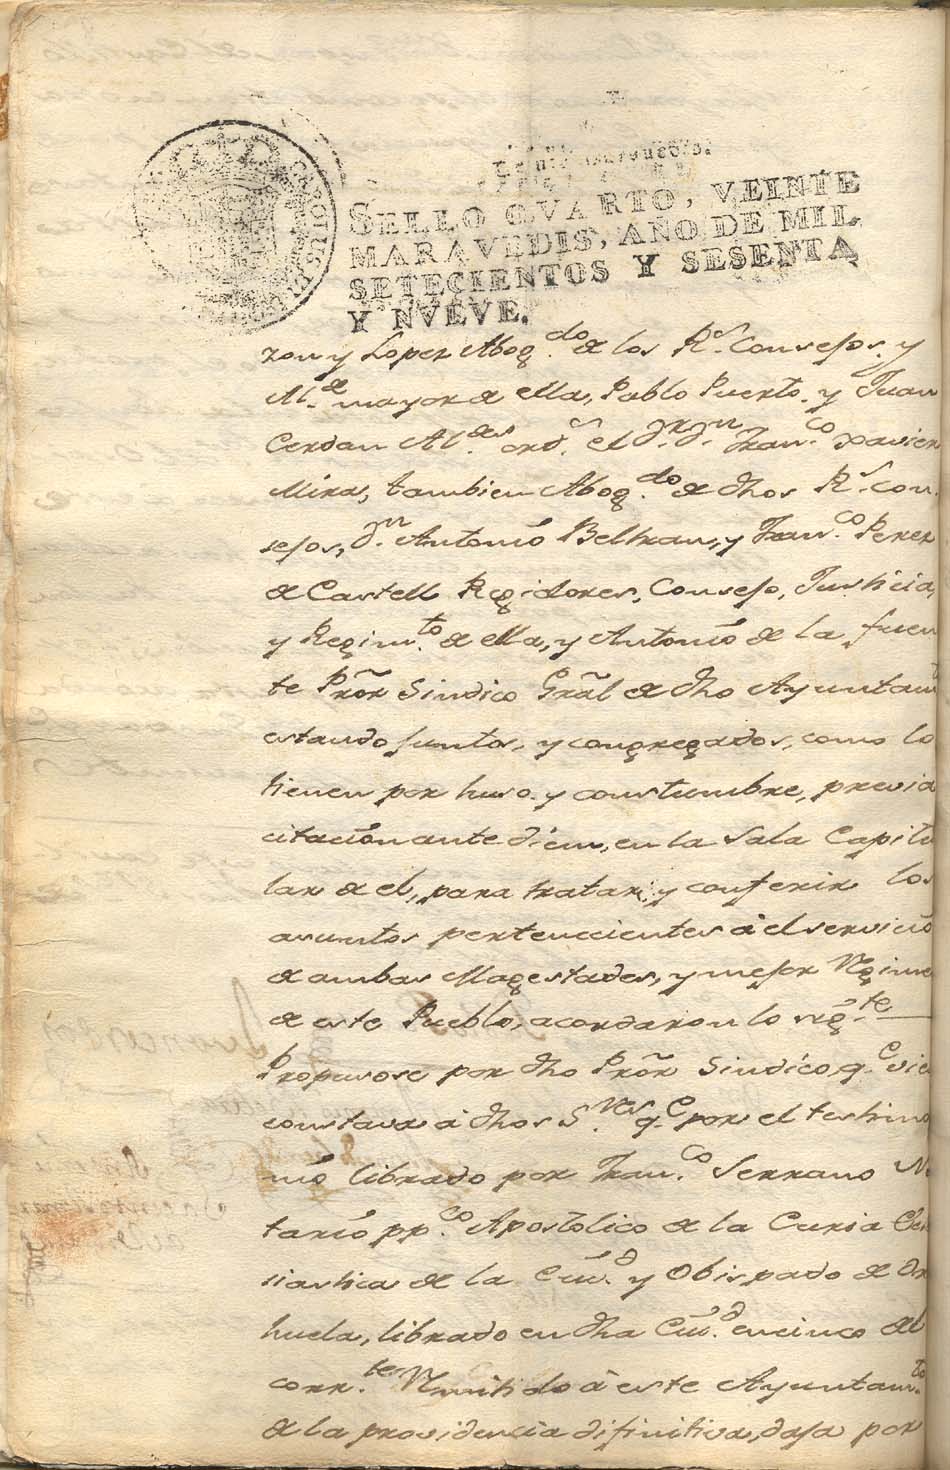 SELLO QVARTO, VEINTE
MARAVEDIS, AÑO DE MIL
SETECIENTOS Y SESENTA
Y NVEVE.
zon y Lopez Abog.do de los R.s Consejos, y
Al.de mayor de ella, Pablo Puerto, y Juan
Cerdan Al.des ord.s el D.r D.n Fran.co Xavier
Mira, tambien Abog.do de dhos R.s Con-
sejos, D.n Antonio Beltran, y Fran.co Perez
de Castell Regidores, Consejo, Justicia,
y Regim.to de ella, y Antonio de la fuen
te Pror Sindico Gral de dho Ayuntam
estando juntos, y congregados, como lo
tienen por huso y constumbre, previa
citacion ante diem, en la Sala Capitu
lar de el, para tratar, y conferir los
asuntos pertenecientes á el servicio
de ambas Magestades, y mejor Regime
de este Pueblo, acordaron lo sig.te
Propusose por dho Pror Sindico, q.e
constava á dhos S.res q.e por el testimo
nio librado por Fran.co Serrano No
tario pp.co Apostolico de la Curia Ecle
siastica de la Ciu.d y Obispado de Ori
huela, librado en dha Ciu.d en cinco del
corr.te Remitido á este Ayuntam.to
de la providencia difinitiva, dada por